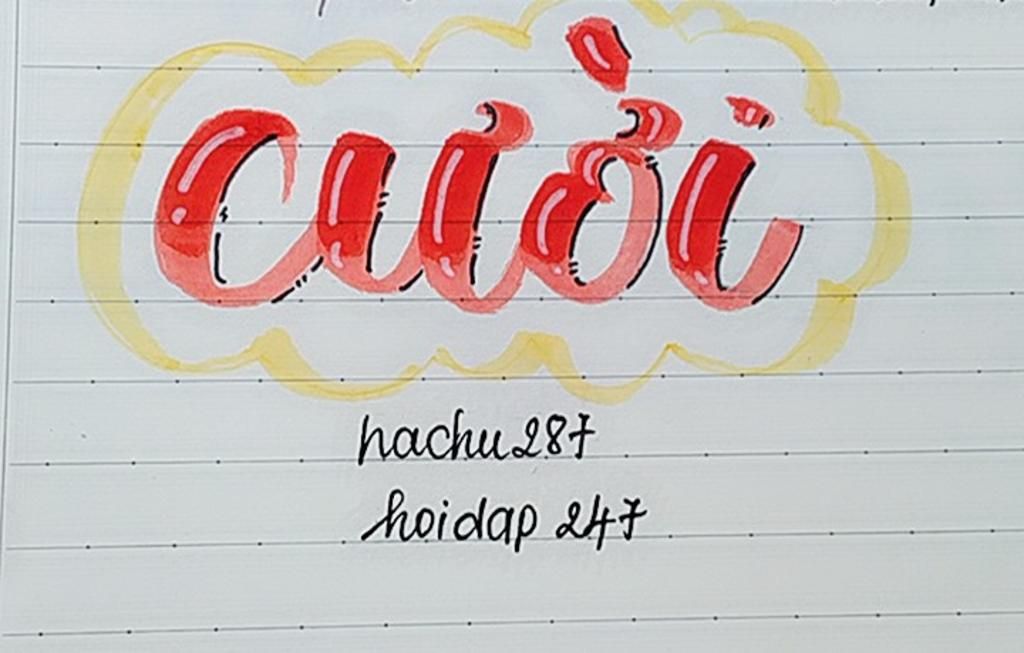 cười
hachu287
hoidap 247